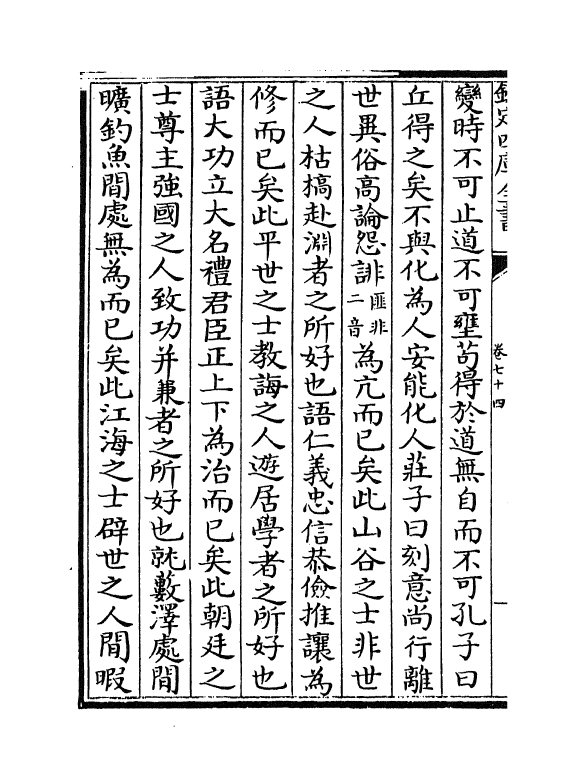 欽定四庫全書
卷七十四
變時不可止道不可壅苟得於道無自而不可孔子曰
丘得之矣不與化為人安能化人莊子曰刻意尚行離
世異俗高論怨誹匪非二音為亢而已矣此山谷之士非世
之人枯槁赴淵者之所好也語仁義忠信恭儉推讓為
修而已矣此平世之士教誨之人遊居學者之所好也
語大功立大名禮君臣正上下為治而已矣此朝廷之
士尊主強國之人致功并兼者之所好也就藪澤處閒
曠釣魚閒處無為而已矣此江海之士辟世之人閒暇